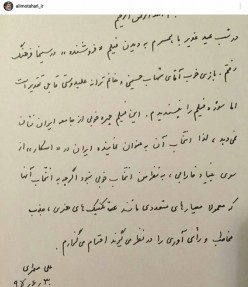 alimotahari_ir
بسم الله الرحمن الرحیم
در شب عید غدیر با همسرم به دیدن فیلم «فروشنده» در سینما فرهنگ
رفتم. بازی خوب آقای شهاب حسینی و خانم ترانه علیدوستی قابل تقدیر است
اما سوژه فیلم را نپسندیدم. این فیلم چهره خوبی از جامعه ایران نشان
نمی‌دهد، لذا انتخاب آن به عنوان نماینده ایران در «اسکار» از
سوی بنیاد فارابی، به نظر من انتخاب خوبی نبود اگرچه به انتخاب آنها
که معمولا معیارهای متعددی مانند تکنیک‌های هنری، جذب
مخاطب و رأی‌آوری را در نظر می‌گیرند احترام می‌گذارم.
علی مطهری